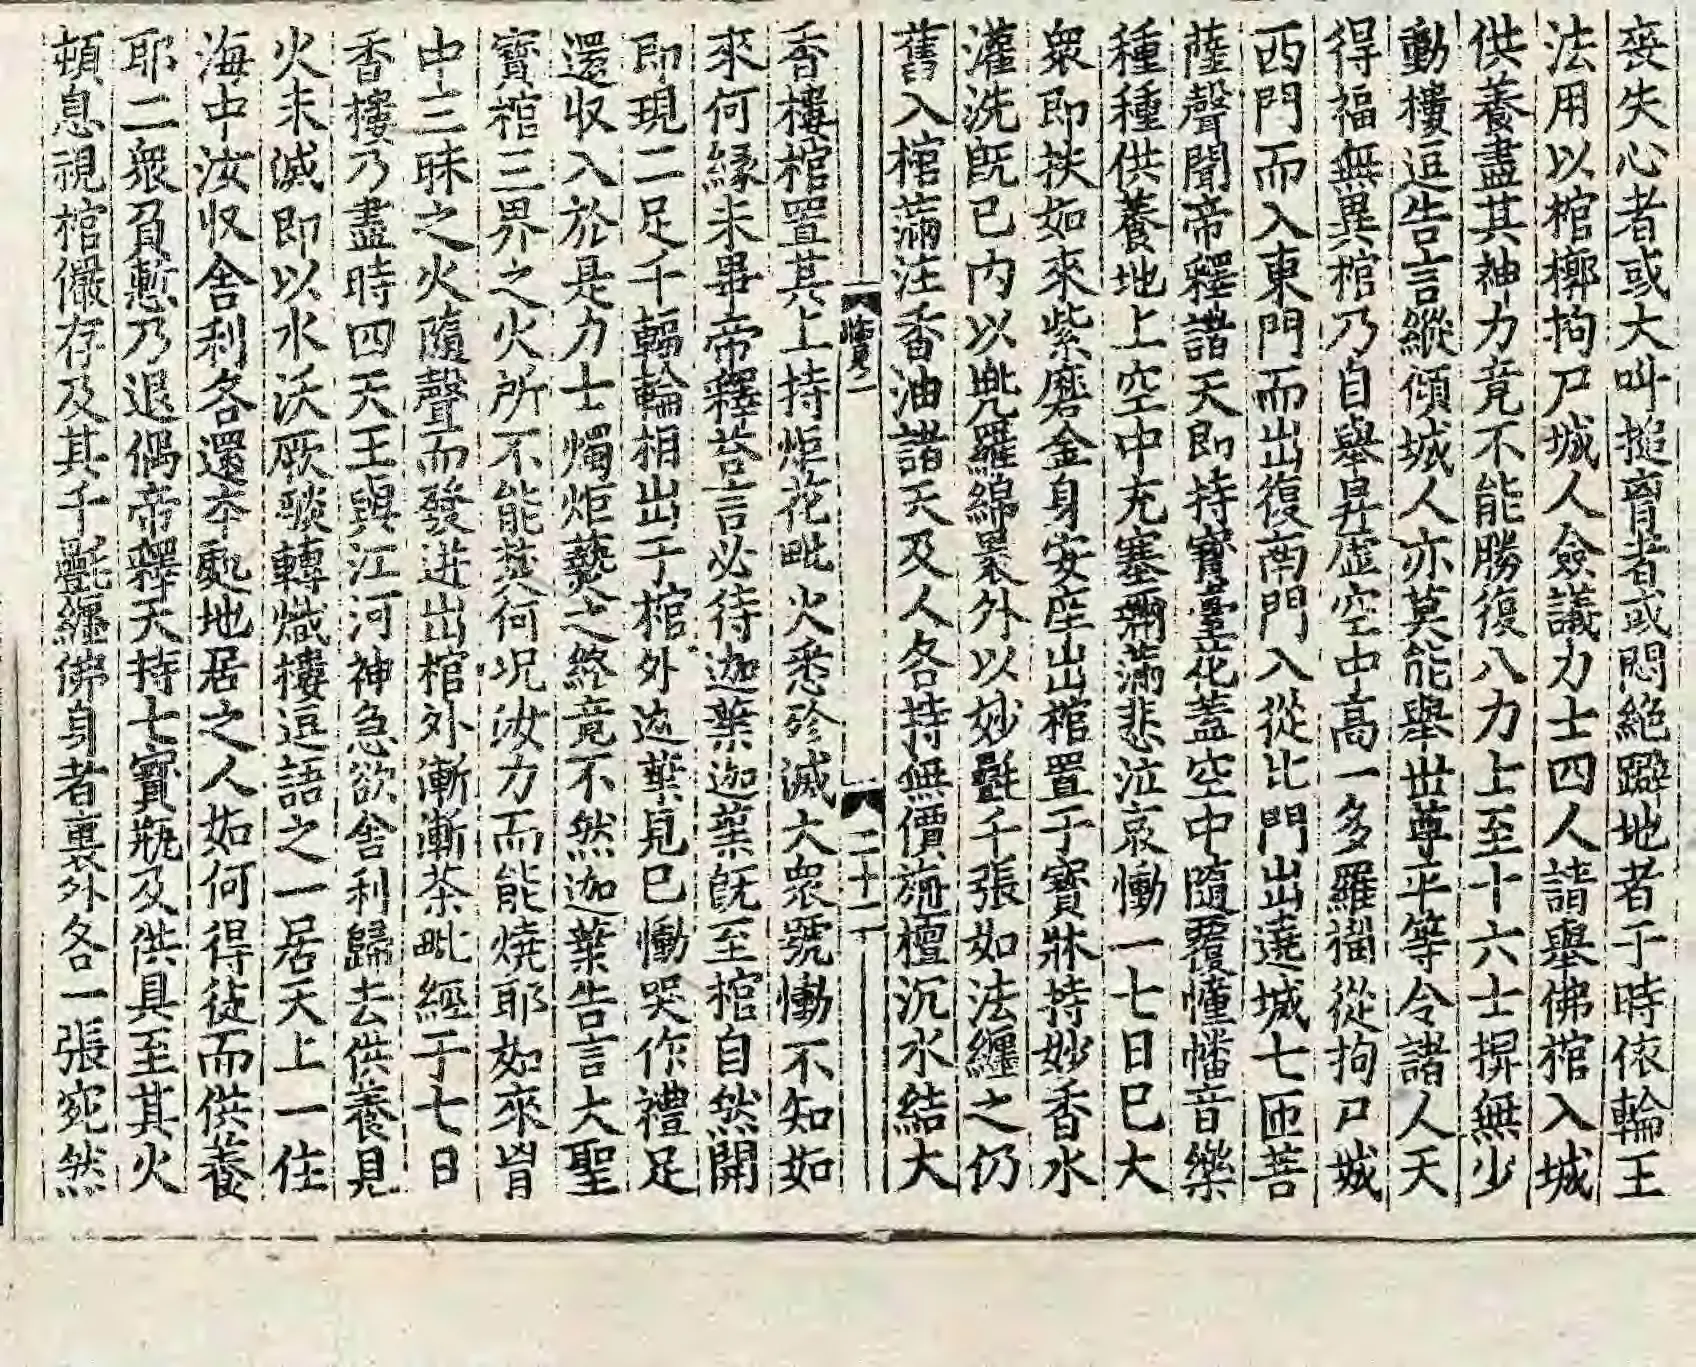 喪失心者或大叫搥胷者或悶絶躃地者于時依輪王
法用以棺槨拘尸城人僉議力士四人請舉佛棺入城
供養盡其神力竟不能勝復八力上至十六士摒無少
動樓逗告言縱傾城人亦莫能舉世尊平等令諸人天
得福無異棺乃自舉昇虛空中高一多羅樹從拘尸城
西門而入東門而出復南門入從比門出遶城七匝菩
薩聲聞帝釋諸天即持寶臺花蓋空中隨覆幢幡音樂
種種供養地上空中充塞彌滿悲泣哀慟一七日巳大
衆即扶如來紫磨金身安座出棺置于寶牀持妙香水
灌洗既已内以兠羅綿褁外以妙㲲千張如法纏之仍
舊入棺滿注香油諸天及人各持無價旃檀沉水結大
臨見二
二十二
香樓棺置其上持炬花毗火悉殄滅大衆號慟不知如
來何緣未畢帝釋荅言必待迦葉迦葉既至棺自然開
即現二足千輻輪相出于棺外迦葉見巳慟哭作禮足
還收入於是力士燭炬爇之終竟不然迦葉告言大聖
寶棺三界之火所不能爇何况汝力而能燒耶如來胷
中三昧之火隨聲而發迸出棺外漸漸茶毗經于七日
香樓乃盡時四天王與江河神急欲舍利歸去供養見
火未滅即以水沃厥燄轉熾樓逗語之一居天上一住
海中汝收舍利各還本處地居之人如何得從而供養
耶二衆負慙乃退偶帝釋天持七寶瓶及供具至其火
頓息視棺儼存及其千㲲纏佛身者裏外各一張宛然